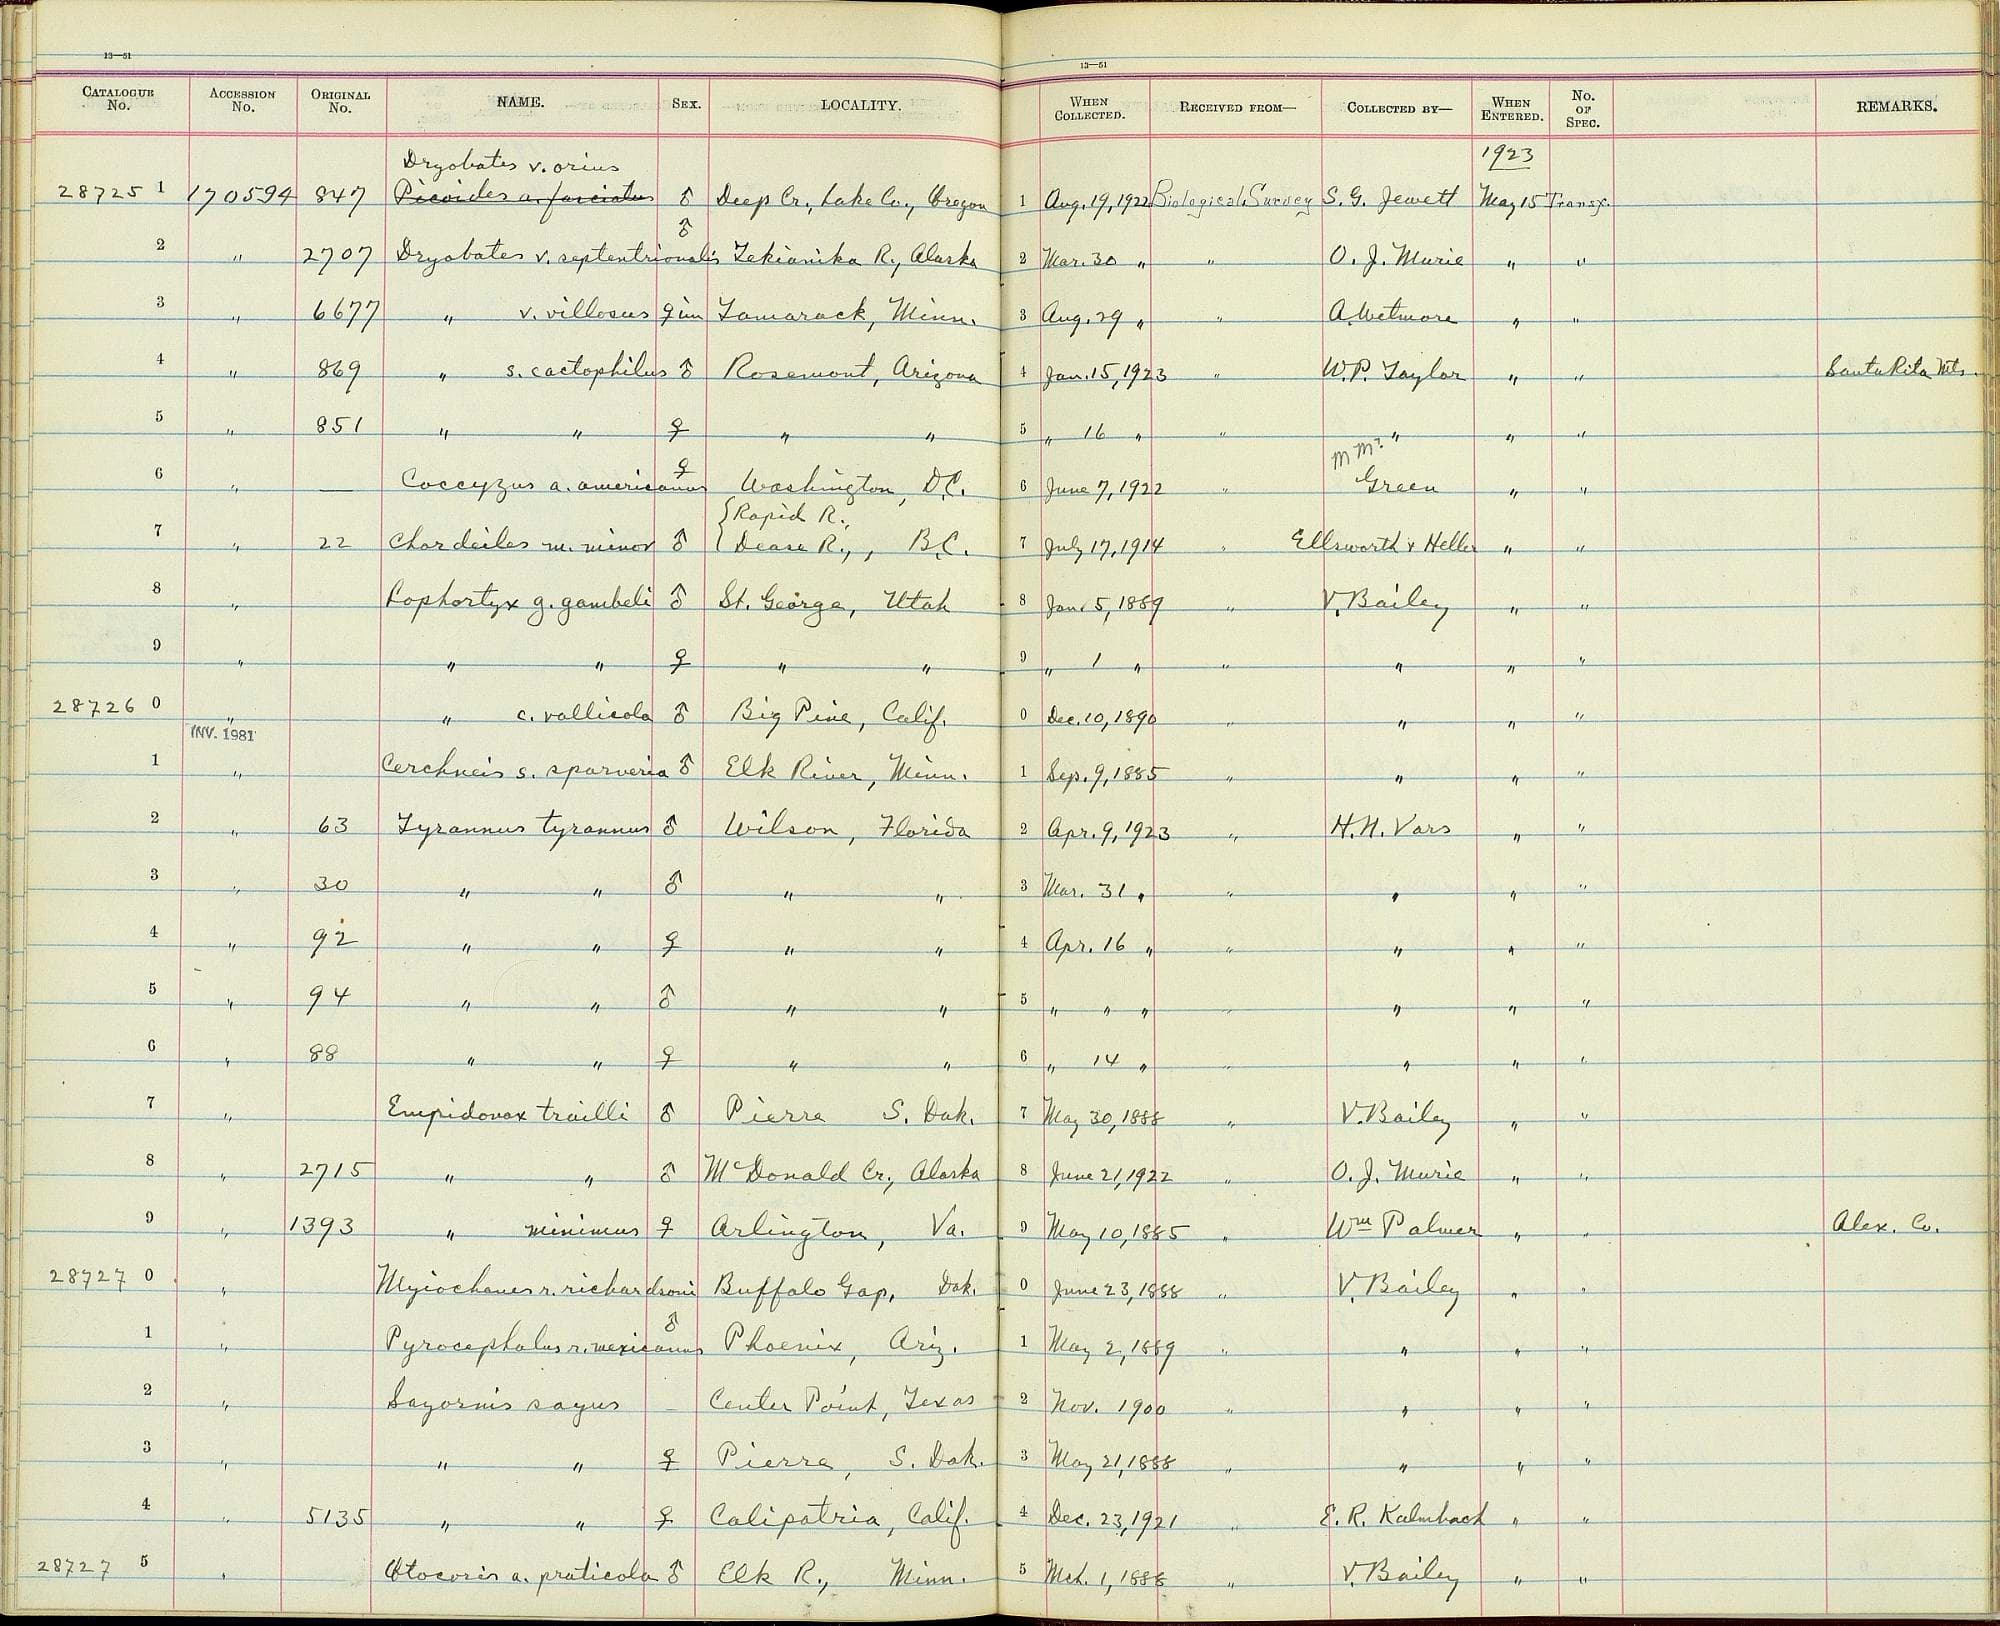 13—51
13—51
CATALOGUE No. ACCESSION No. ORIGINAL No. NAME. SEX. LOCALITY. WHEN COLLECTED. RECEIVED FROM— COLLECTED BY— WHEN ENTERED. No. OF SPEC. REMARKS.
Dryobates v. orius 1923
28725 1 170594 847 Picoides a. fasciatus ♂ Deep Cr., Lake Co., Oregon 1 Aug. 19, 1922 Biological Survey S. G. Jewett May 15 Transf.
2 " 2707 Dryobates v. septentrionalis ♂ Tekianika R., Alaska 2 Mar. 30 " " O. J. Murie " "
3 " 6677 " v. villosus ♀ im Tamarack, Minn. 3 Aug. 29 " " A. Wetmore " "
4 " 869 " s. cactophilus ♂ Rosemont, Arizona 4 Jan. 15, 1923 " W. P. Taylor " " Santa Rita Mts.
5 " 851 " " ♀ " " 5 " 16 " " " " "
6 " — Coccyzus a. americanus ♀ Washington, D.C. 6 June 7, 1922 " Green " "
{ Rapid R.,
7 " 22 Chordeiles m. minor ♂ Dease R., , B.C. 7 July 17, 1914 " Ellsworth & Heller " "
8 " Lophortyx g. gambeli ♂ St. George, Utah 8 Jan. 5, 1889 " V. Bailey " "
9 " " " ♀ " " 9 " 1 " " " " "
28726 0 " " c. vallicola ♂ Big Pine, Calif. 0 Dec. 10, 1890 " " " "
INV. 1981
1 " Cerchneis s. sparveria ♂ Elk River, Minn. 1 Sep. 9, 1885 " " " "
2 " 63 Tyrannus tyrannus ♂ Wilson, Florida 2 Apr. 9, 1923 " H. N. Vars " "
3 " 30 " " ♂ " " 3 Mar. 31 " " " " "
4 " 92 " " ♀ " " 4 Apr. 16 " " " " "
5 " 94 " " ♂ " " 5 " " " " " " "
6 " 88 " " ♀ " " 6 " 14 " " " " "
7 " Empidonax trailli ♂ Pierre S. Dak. 7 May 30, 1888 " V. Bailey " "
8 " 2715 " " ♂ McDonald Cr., Alaska 8 June 21, 1922 " O. J. Murie " "
9 " 1393 " minimus ♀ Arlington, Va. 9 May 10, 1885 " Wm Palmer " " Alex. Co.
28727 0 " Myiochanes r. richardsoni Buffalo Gap, Dak. 0 June 23, 1888 " V. Bailey " "
1 " Pyrocephalus r. mexicanus ♂ Phoenix, Ariz. 1 May 2, 1889 " " " "
2 " Sayornis sayus – Center Point, Texas 2 Nov. 1900 " " " "
3 " " " ♀ Pierre, S. Dak. 3 May 21, 1888 " " " "
4 " 5135 " " ♀ Calipatria, Calif. 4 Dec. 23, 1921 " E. R. Kalmbach " "
28727 5 " Otocoris a. praticola ♂ Elk R., Minn. 5 Mch. 1, 1888 " V. Bailey " "